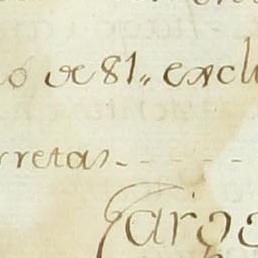 o de 81,, exclu
rretas - - - -
Cargo